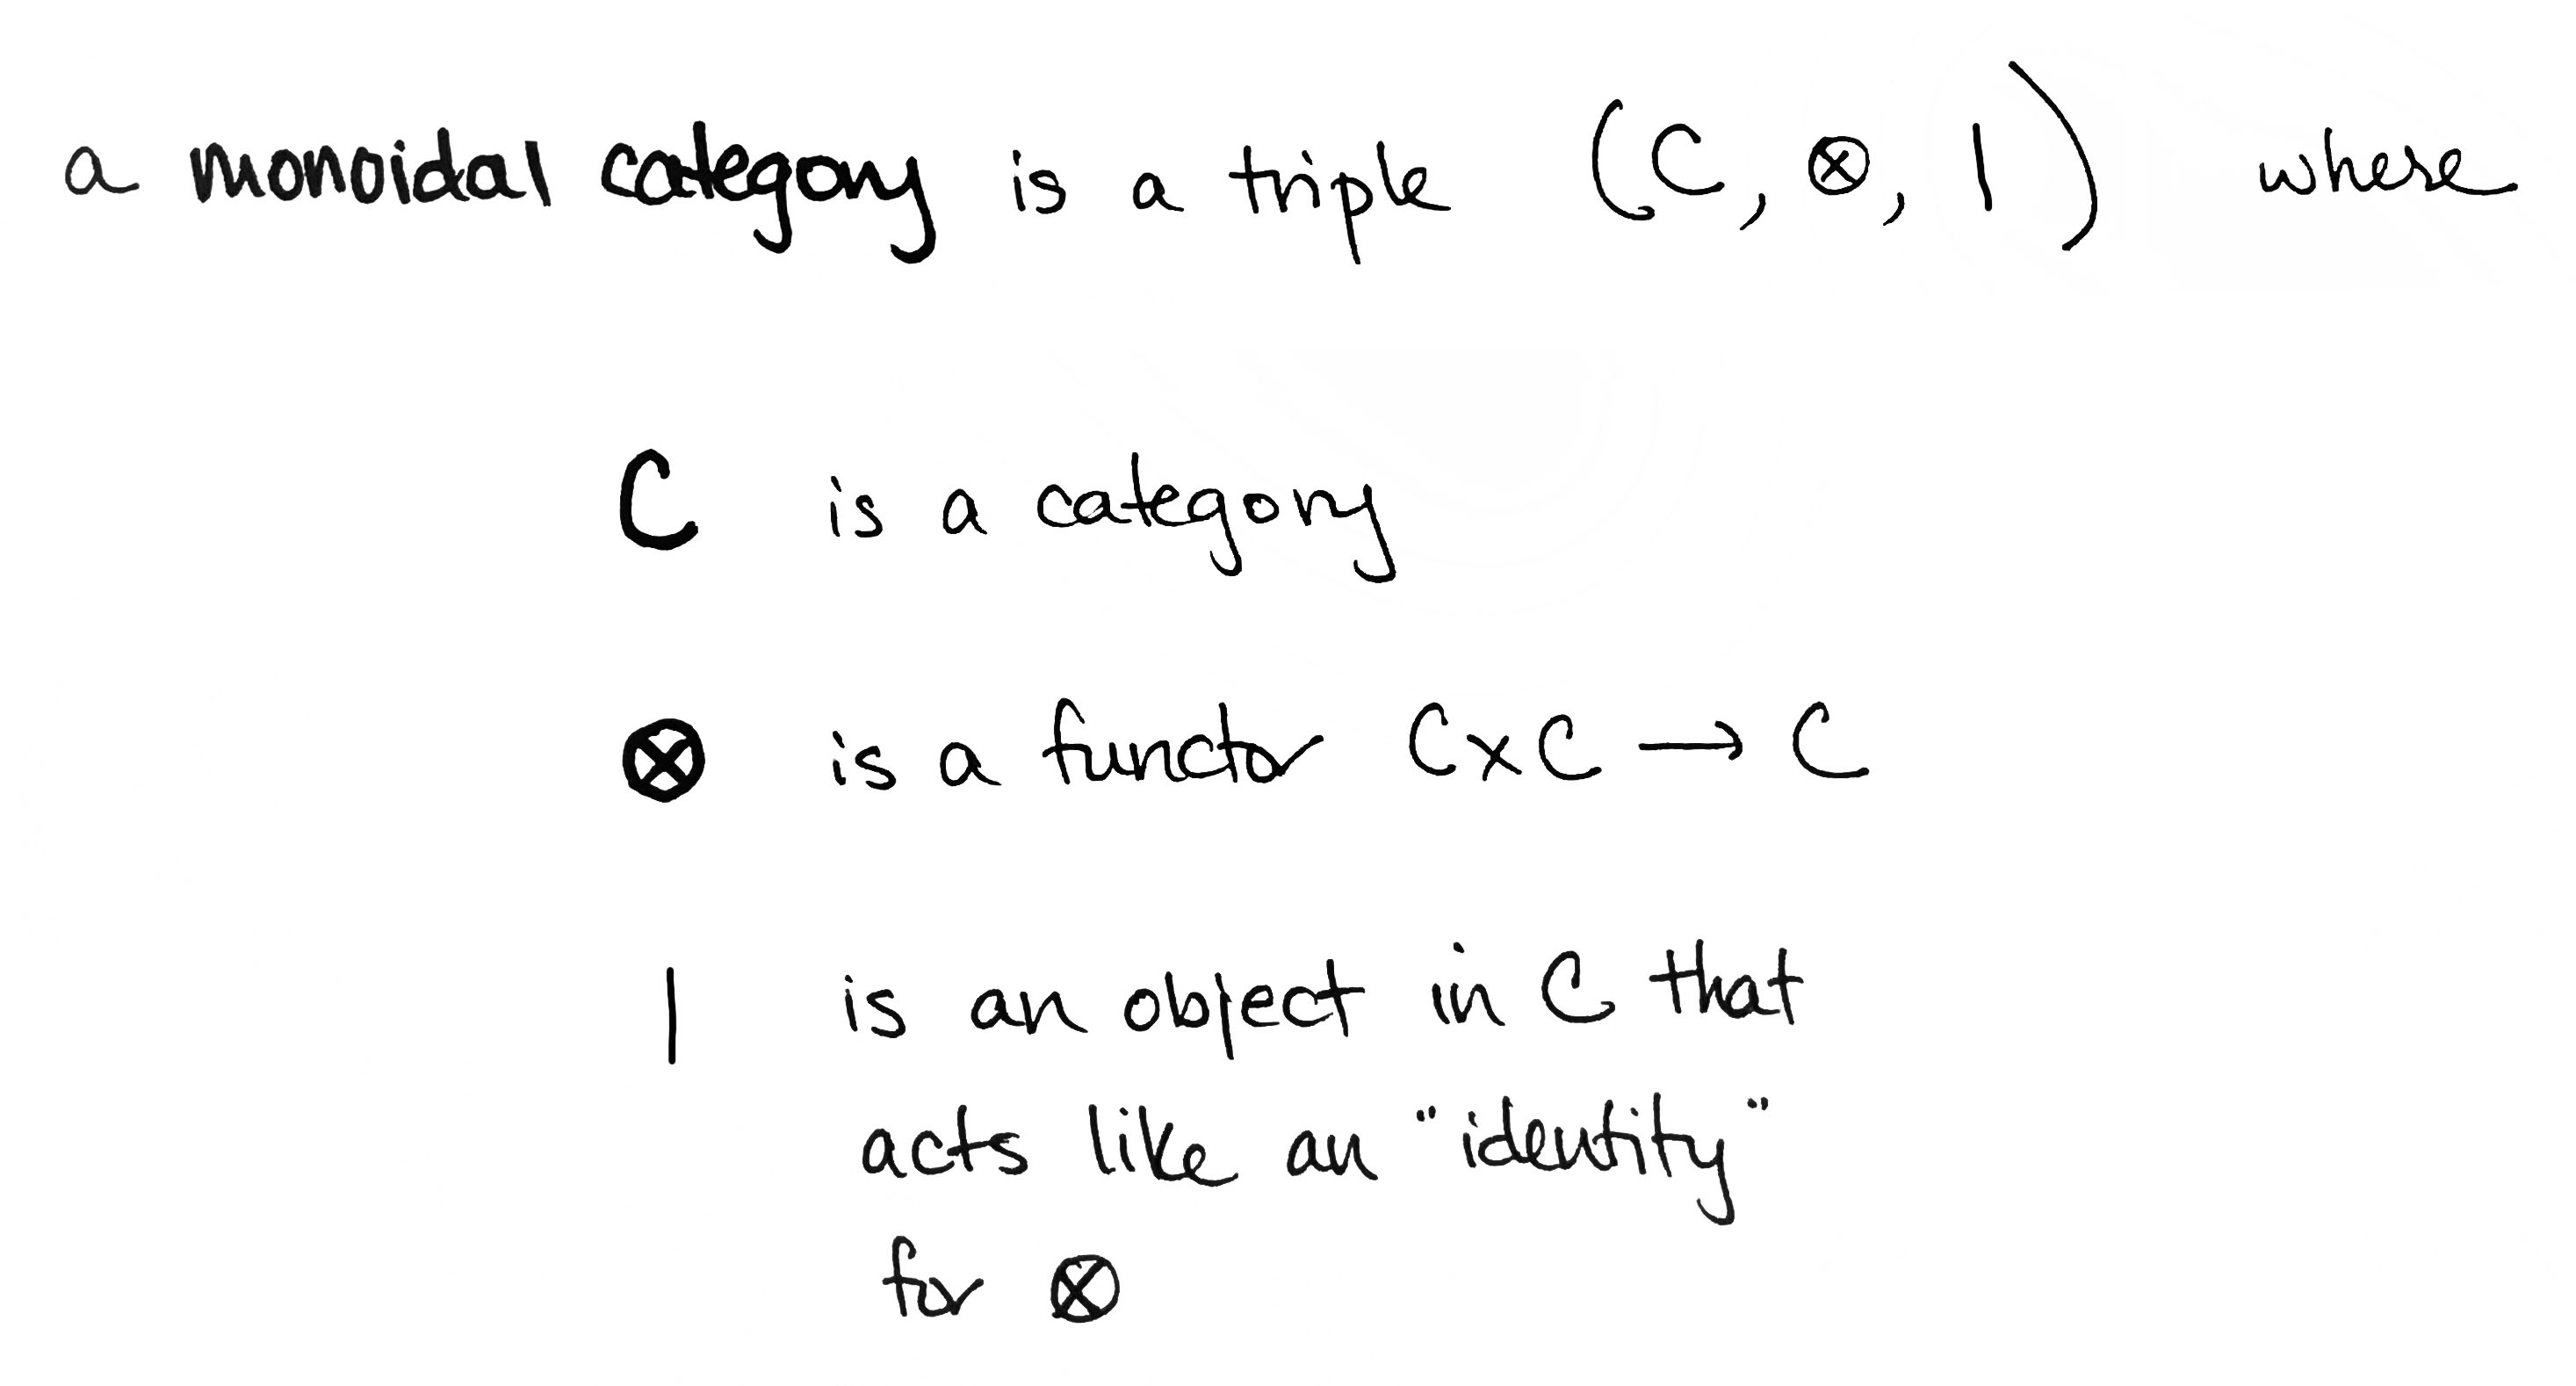 a monoidal category is a triple (C, ⊗, 1) where
C is a category
⊗ is a functor C×C → C
1 is an object in C that
acts like an "identity"
for ⊗